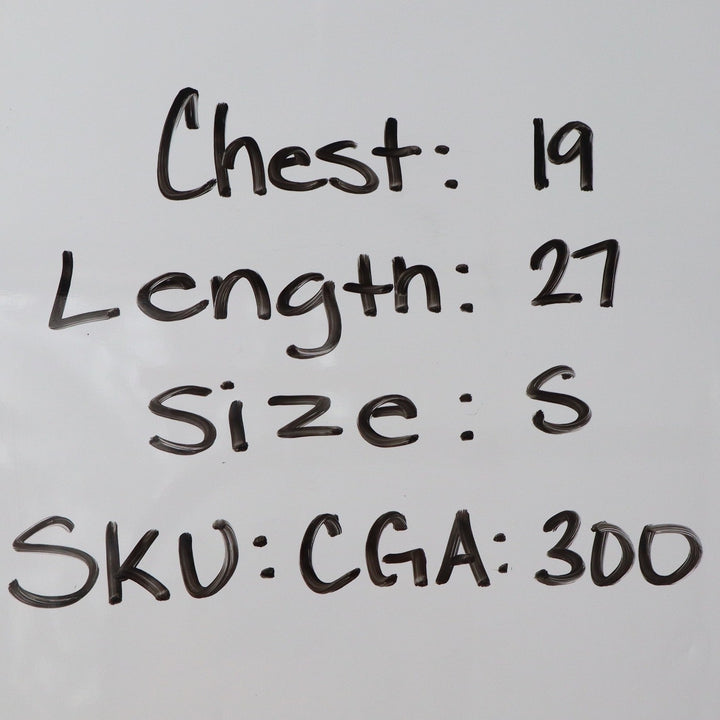 Chest: 19
Length: 27
Size: S
SKU: CGA: 300